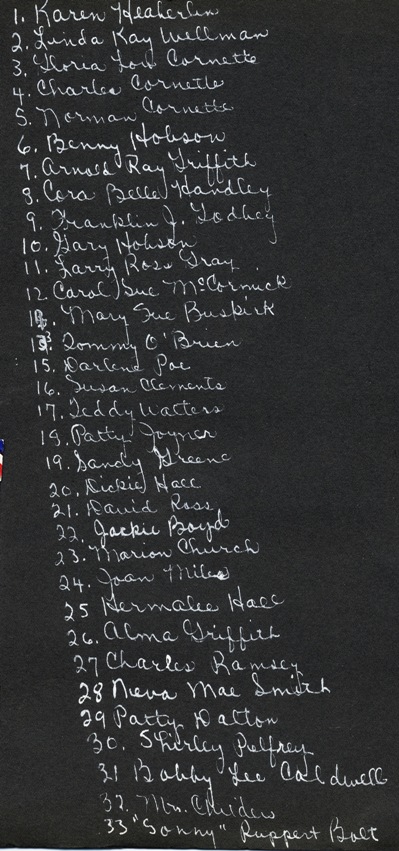 1. Karen Heaherlin
2. Linda Kay Wellman
3. Gloria Lou Cornette
4. Charles Cornette
5. Norman Cornette
6. Benny Hobson
7. Arnold Ray Griffith
8. Cora Belle Handley
9. Franklin J. Godbey
10. Gary Hobson
11. Larry Ross Gray
12 Carol Sue McCormick
Mary Sue Buskirk
13. Tommy O'Brien
15. Darlene Poe
16. Susan Clements
17. Teddy Watters
18. Patty Joyner
19. Sandy Greene
20. Dickie Hall
21. David Ross
22. Jackie Boyd
23. Marion Church
24. Joan Miles
25 Hermalee Hall
26. Alma Griffith
27 Charles Ramsey
28 Neva Mae Smith
29 Patty Dalton
30. Shirley Pelfrey
31 Bobby Lee Caldwell
32. Mrs.
33 "Sonny" Ruppert Bolt